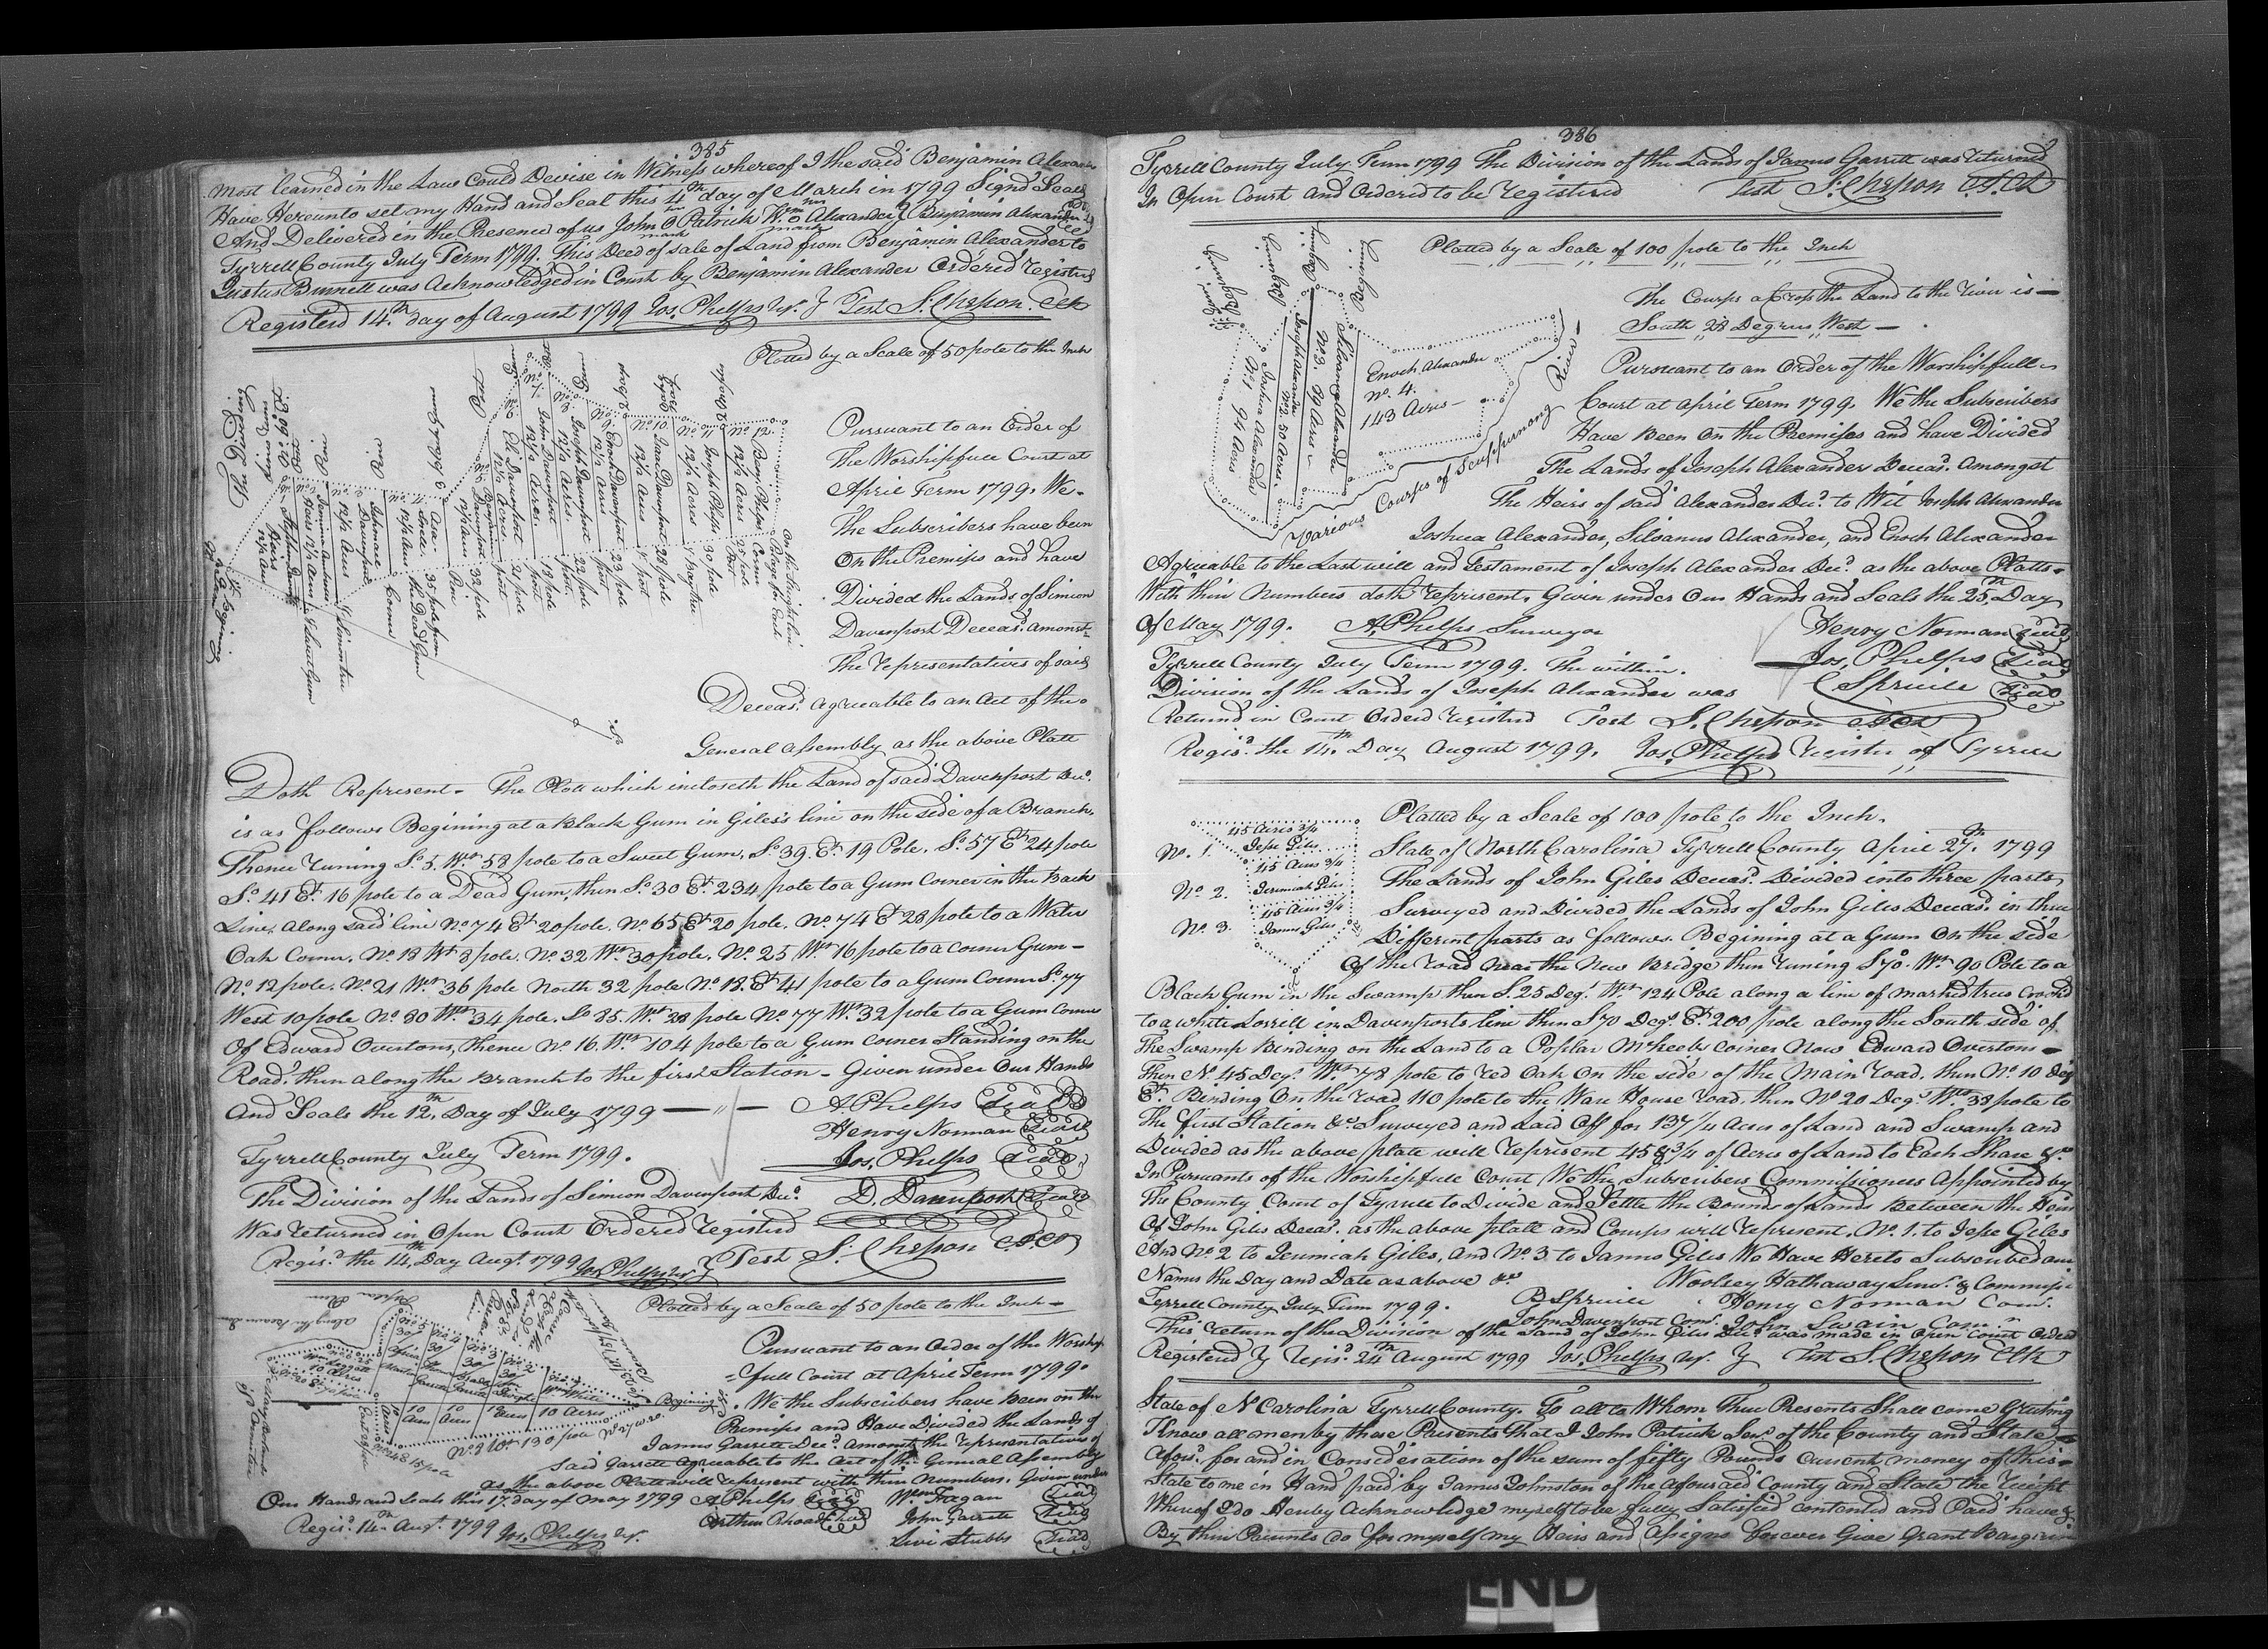 385
most learned in the Law Could Devise in Witness whereof I the said Benjamin Alexander
Have Hereunto set my Hand and Seal this 4th day of March in 1799 Signd Seald
And Delivered in the Presence of us John Patrick Wm Alexander } Benjamin Alexander
mark mark
Tyrrell County July Term 1799. This Deed of sale of Land from Benjamin Alexander to
Justus Burnett was Acknowledged in Court by Benjamin Alexander Ordered Registerd
Registerd 14th day of August 1799 Jos. Phelps Test S. Chesson Clk
Platted by a Scale of 50 pole to the Inch
No. 7. John Davenport 12 1/2 Acres
No. 8 Joseph Davenport 12 1/2 Acres
No. 9 Enoch Davenport 12 1/2 Acres
No. 10. Isaac Davenport 12 1/2 Acres
No. 11 Joseph Phelps 12 1/2 Acres
No. 12. Benj. Phelps 12 1/2 Acres
Pursuant to an Order of
The Worshipfull Court at
April Term 1799. We
The Subscribers have been
On the Premises and have
Divided the Lands of Simeon
Davenport Deceasd. amonst
The representatives of said
Deceasd. agreeable to an Act of the
General Assembly as the above Platt
Doth Represent. The Plott which incloseth the Land of said Davenport Decd.
is as follows Begining at a Black Gum in Giles's line on the side of a Branch,
Thence runing So. 5. Wt. 58 pole to a Sweet Gum, So. 39. Et. 19 Pole. So. 57 Et 24 pole
So. 41 Et. 16 pole to a Dead Gum, then So. 30 Et. 234 pole to a Gum Corner in the Back
Line, along said line No. 74 Et. 20 pole. No. 65 Et 20 pole. No. 74 Et 28 pole to a Water
Oak Corner, No. 18 Wt 8 pole. No. 32 Wt. 30 pole. No. 25 Wt. 16 pole to a corner Gum
No. 12 pole. No. 21 Wt. 36 pole North 32 pole No. 18. Et 41 pole to a Gum Corner So. 77
West 10 pole No. 80 Wt. 34 pole. So 85. Wt. 28 pole No. 77 Wt. 32 pole to a Gum Corner
Of Edward Overtons, Thence No. 16. Wt. 104 pole to a Gum corner Standing on the
Road, then along the Branch to the first Station. Given under Our Hands
And Seals the 12th Day of July 1799 A. Phelps Seal
Henry Norman Seal
Tyrrell County July Term 1799. Jos. Phelps Seal
The Division of the Lands of Simeon Davenport Decd. D. Davenport Seal
Was returned in Open Court Ordered registerd
Regisd. the 14th Day Augt. 1799 Jos. Phelps Test S. Chesson
Platted by a Scale of 50 pole to the Inch
Pursuant to an Order of the Worship
=full Court at April Term 1799.
Begining
We the Subscribers have Been on the
Premises and Have Divided the Lands of
James Garrett Decd. amonst the representatives of
Said Garrett agreeable to the Act of the General Assembly
as the above Platt will represent with their numbers. Given under
Our Hands and Seals this 17 day of May 1799 A Phelps Seal Wm Fagan Seal
Arthur Rhoads Seal John Garrett Seal
Regisd. 14th Augt. 1799 Jos. Phelps
Levi Stubbs Seal
386
Tyrrell County July Term 1799 The Division of the Lands of James Garrett was returned
In Open Court and Ordered to be registered Test S. Chesson
Platted by a Scale of 100 pole to the Inch
Joshua Alexander No. 1 94 Acres
Joseph Alexander No. 2 50 Acres
Silvanus Alexander No. 3. 99 Acres
Enoch Alexander
No. 4.
143 Acres
Various Courses of Scuppernong River
The Courss aCross the Land to the River is
South 28 Degrees West
Pursuant to an Order of the Worshipfull
Court at April Term 1799. We the Subscribers
Have Been On the Premises and have Divided
The Lands of Joseph Alexander Deceasd. Amongst
The Heirs of said Alexander Decd. to Wit Joseph Alexander
Joshua Alexander, Silvanus Alexander, and Enoch Alexander
Agreeable to the Last will and Testament of Joseph Alexander Decd. as the above Platts
With their Numbers doth represent, Given under Our Hands and Seals the 25th Day
Of May 1799. A. Phelps Surveyor Henry Norman Seal
Tyrrell County July Term 1799. The within Jos. Phelps Seal
Division of the Lands of Joseph Alexander was Spruill Seal
Returnd in Court Orderd registerd Test S. Chesson
Regisd. the 14th Day August 1799. Jos. Phelps register of Tyrrell
Platted by a Scale of 100 pole to the Inch.
No. 1. 45 Acres 3/4 Jesse Giles
No. 2. 45 Acres 3/4 Jeremiah Giles
No. 3. 45 Acres 3/4 James Giles
State of North Carolina Tyrrell County April 27th 1799
The Lands of John Giles Deceasd. Divided into three parts
Surveyed and Divided the Lands of John Giles Deceasd. in three
Different parts as follows. Begining at a Gum On the side
Of the road near the New Bridge then runing S 70. Wt. 90 Pole to a
Black Gum in the Swamp then S. 25 Degs. Wt. 124 Pole along a line of marked trees
to a white Lorrill in Davenports line then S 70 Degs. Et. 200 pole along the South side of
The Swamp Binding on the Land to a Poplar corner Now Edward Overtons
Then No. 45 Degs. Wt. 78 pole to red Oak On the side of the Main road, then No. 10 Deg
Et. Binding On the road 110 pole to the Ware House road, then No. 20 Degs. Wt. 38 pole to
The first Station &c Surveyed and Laid Off for 137 1/4 Acres of Land and Swamp and
Divided as the above plate will represent 45 & 3/4 of Acres of Land to Each Share &c
In Pursuants of the Worshipfull Court We the Subscribers Commissioners Appointed by
The County Court of Tyrrell to Divide and Settle the Bounds of Lands Between the Heirs
Of John Giles Deceasd. as the above platt and Courses will represent, No. 1. to Jesse Giles
And No. 2 to Jeremiah Giles, and No. 3 to James Giles We Have Hereto Subscribed our
Names the Day and Date as above &c Woolsey Hathaway
Tyrrell County July Term 1799. B Spruill Henry Norman Com.
John Davenport Com. John Swain Com.
This return of the Division of the Land of John Giles Decd. was made in Open Court Orderd
Registerd } Regisd. 24th August 1799 Jos. Phelps Test S. Chesson Clk
State of N Carolina Tyrrell County. To all to Whom These Presents Shall come Greeting
Know all men by these Presents That I John Patrick Senr. of the County and State
Aforsd. for and in Consideration of the sum of fifty Pounds current money of this
State to me in Hand paid by James Johnston of the aforesaid County and State the receipt
Whereof I do Hereby Acknowledge myself to be fully Satisfied contented and Paid have &
By these Presents do for myself my Heirs and Assigns forever Give Grant Bargain
END